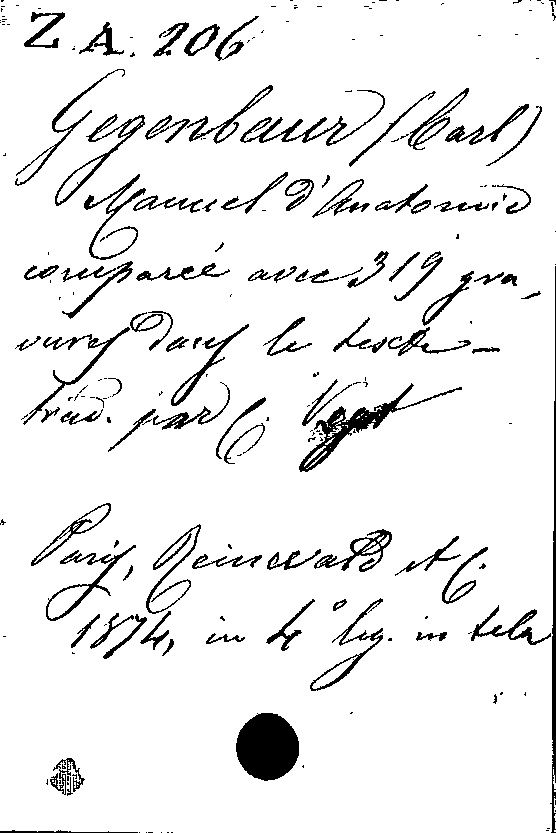 Z.A. 206
Gegenbaur (Carl)
Manuel d'Anatomie
comparée avec 319 gra,
vures dans le texte -
trad. par C. Vogt
Paris, Reinwald et C.
1874, in 4° leg. in tela